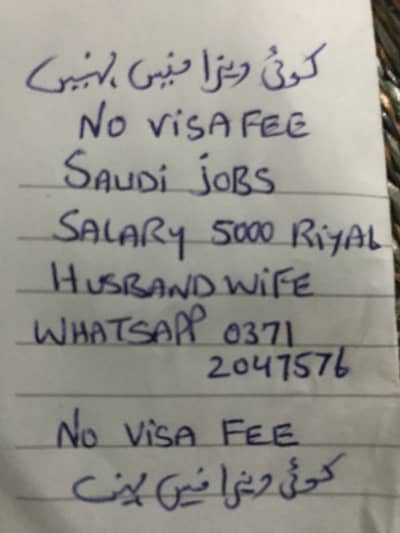 کوئی ویزا فیس نہیں
NO VISA FEE
SAUDI JOBS
SALARY 5000 RIYAL
HUSBAND WIFE
WHATSAPP 0371
2047576
NO VISA FEE
کوئی ویزا فیس نہیں